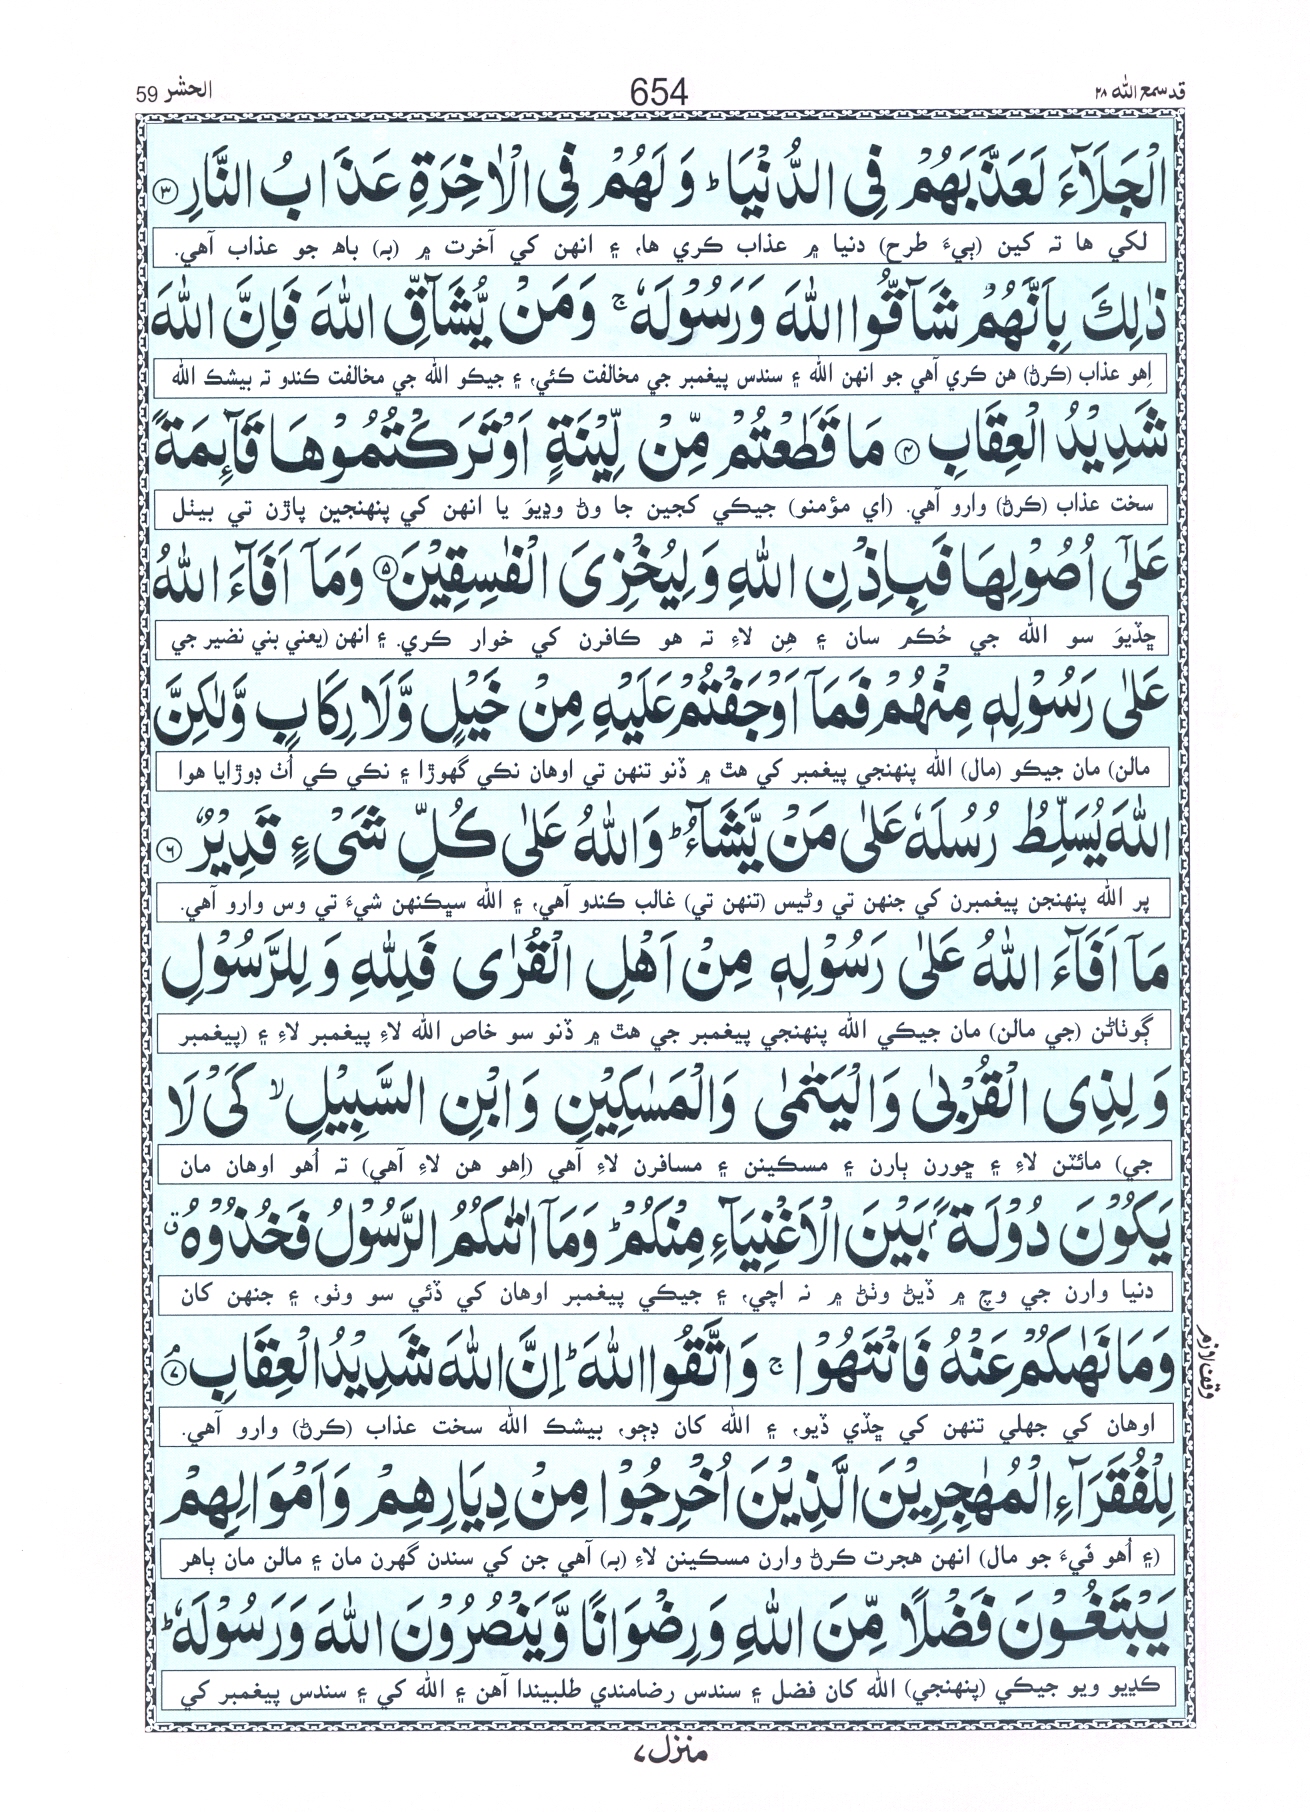 قد سمع الله ٢٨ 654 الحشر 59
الْجَلَآءَ لَعَذَّبَهُمْ فِى الدُّنْيَا ؕ وَ لَهُمْ فِى الْاٰخِرَةِ عَذَابُ النَّارِ ۝٣
لکي ها ته کين (ٻيءَ طرح) دنيا ۾ عذاب ڪري ها، ۽ انهن کي آخرت ۾ (به) باھ جو عذاب آهي.
ذٰلِكَ بِاَنَّهُمْ شَآقُّوا اللّٰهَ وَ رَسُوْلَهٗ ۚ وَمَنْ يُّشَآقِّ اللّٰهَ فَاِنَّ اللّٰهَ
اِهو عذاب (ڪرڻ) هن ڪري آهي جو انهن الله ۽ سندس پيغمبر جي مخالفت ڪئي، ۽ جيڪو الله جي مخالفت ڪندو ته بيشڪ الله
شَدِيْدُ الْعِقَابِ ۝٤ مَا قَطَعْتُمْ مِّنْ لِّيْنَةٍ اَوْ تَرَكْتُمُوْهَا قَآئِمَةً
سخت عذاب (ڪرڻ) وارو آهي. (اي مؤمنو) جيڪي کجين جا وڻ وڍيوَ يا انهن کي پنهنجين پاڙن تي بيٺل
عَلٰٓى اُصُوْلِهَا فَبِاِذْنِ اللّٰهِ وَ لِيُخْزِىَ الْفٰسِقِيْنَ ۝٥ وَمَآ اَفَآءَ اللّٰهُ
ڇڏيوَ سو الله جي حُڪم سان ۽ هِن لاءِ ته هو ڪافرن کي خوار ڪري. ۽ انهن (يعني بني نضير جي
عَلٰى رَسُوْلِهٖ مِنْهُمْ فَمَآ اَوْجَفْتُمْ عَلَيْهِ مِنْ خَيْلٍ وَّلَا رِكَابٍ وَّلٰكِنَّ
مالن) مان جيڪو (مال) الله پنهنجي پيغمبر کي هٿ ۾ ڏنو تنهن تي اوهان نڪي گهوڙا ۽ نڪي ڪي اُٺ ڊوڙايا هوا
اللّٰهَ يُسَلِّطُ رُسُلَهٗ عَلٰى مَنْ يَّشَآءُ ؕ وَاللّٰهُ عَلٰى كُلِّ شَىْءٍ قَدِيْرٌ ۝٦
پر الله پنهنجن پيغمبرن کي جنهن تي وڻيس (تنهن تي) غالب ڪندو آهي، ۽ الله سڀڪنهن شيءَ تي وس وارو آهي.
مَآ اَفَآءَ اللّٰهُ عَلٰى رَسُوْلِهٖ مِنْ اَهْلِ الْقُرٰى فَلِلّٰهِ وَ لِلرَّسُوْلِ
ڳوٺاڻن (جي مالن) مان جيڪي الله پنهنجي پيغمبر جي هٿ ۾ ڏنو سو خاص الله لاءِ پيغمبر لاءِ ۽ (پيغمبر
وَ لِذِى الْقُرْبٰى وَالْيَتٰمٰى وَالْمَسٰكِيْنِ وَ ابْنِ السَّبِيْلِ ۙ كَىْ لَا
جي) مائٽن لاءِ ۽ ڇورن ٻارن ۽ مسڪينن ۽ مسافرن لاءِ آهي (اِهو هن لاءِ آهي) ته اُهو اوهان مان
يَكُوْنَ دُوْلَةًۢ بَيْنَ الْاَغْنِيَآءِ مِنْكُمْ ؕ وَمَآ اٰتٰىكُمُ الرَّسُوْلُ فَخُذُوْهُ ۗ
دنيا وارن جي وچ ۾ ڏيڻ وٺڻ ۾ نه اچي، ۽ جيڪي پيغمبر اوهان کي ڏئي سو وٺو، ۽ جنهن کان
وَمَا نَهٰىكُمْ عَنْهُ فَانْتَهُوْا ۚ وَاتَّقُوا اللّٰهَ ؕ اِنَّ اللّٰهَ شَدِيْدُ الْعِقَابِ ۝٧ۘ
وقف لازم
اوهان کي جهلي تنهن کي ڇڏي ڏيو، ۽ الله کان ڊڄو، بيشڪ الله سخت عذاب (ڪرڻ) وارو آهي.
لِلْفُقَرَآءِ الْمُهٰجِرِيْنَ الَّذِيْنَ اُخْرِجُوْا مِنْ دِيَارِهِمْ وَاَمْوَالِهِمْ
(۽ اُهو فَيءَ جو مال) انهن هجرت ڪرڻ وارن مسڪينن لاءِ (به) آهي جن کي سندن گهرن مان ۽ مالن مان ٻاهر
يَبْتَغُوْنَ فَضْلًا مِّنَ اللّٰهِ وَرِضْوَانًا وَّيَنْصُرُوْنَ اللّٰهَ وَرَسُوْلَهٗ ؕ
ڪڍيو ويو جيڪي (پنهنجي) الله کان فضل ۽ سندس رضامندي طلبيندا آهن ۽ الله کي ۽ سندس پيغمبر کي
منزل ٧